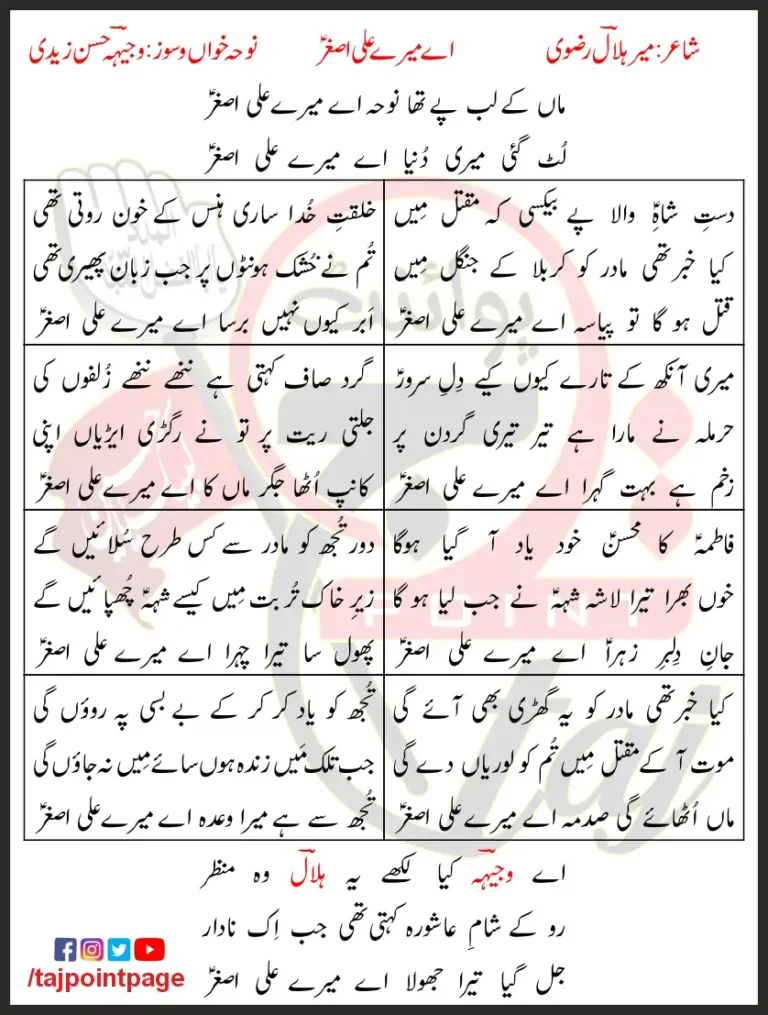 شاعر: میر ہلال رضوی
اے میرے علی اصغرؑ
نوحہ خواں و سوز: وجیہہ حسن زیدی
ماں کے لب پے تھا نوحہ اے میرے علی اصغرؑ
لُٹ گئی میری دُنیا اے میرے علی اصغرؑ
دستِ شاہِؑ والا پے بیکسی کہ مقتل مِیں
کیا خبر تھی مادر کو کربلا کے جنگل مِیں
قتل ہو گا تو پیاسہ اے میرے علی اصغرؑ
خلقتِ خُدا ساری ہنس کے خون روتی تھی
تُم نے خُشک ہونٹوں پر جب زبان پھیری تھی
اَبر کیوں نہیں برسا اے میرے علی اصغرؑ
میری آنکھ کے تارے کیوں کیے دِلِ سرورؑ
حرملہ نے مارا ہے تیر تیری گردن پر
زخم ہے بہت گہرا اے میرے علی اصغرؑ
گرد صاف کہتی ہے ننھے ننھے زُلفوں کی
جلتی ریت پر تو نے رگڑی ایڑیاں اپنی
کانپ اُٹھا جگر ماں کا اے میرے علی اصغرؑ
فاطمہؑ کا محسنؑ خود یاد آ گیا ہوگا
خوں بھرا تیرا لاشہ شہہؑ نے جب لیا ہو گا
جانِ دِلبرِ زہراؑ اے میرے علی اصغرؑ
دور تُجھ کو مادر سے کس طرح سُلائیں گے
زیرِ خاک تُربت مِیں کیسے شہہؑ چُھپائیں گے
پھول سا تیرا چہرا اے میرے علی اصغرؑ
کیا خبر تھی مادر کو یہ گھڑی بھی آئے گی
موت آ کے مقتل مِیں تُم کو لوریاں دے گی
ماں اُٹھائے گی صدمہ اے میرے علی اصغرؑ
تُجھ کو یاد کر کر کے بے بسی پہ روؤں گی
جب تلک مَیں زندہ ہوں سائے مِیں نہ جاؤں گی
تُجھ سے ہے میرا وعدہ اے میرے علی اصغرؑ
اے وجیہہ کیا لکھے یہ ہلال وہ منظر
رو کے شامِ عاشورہ کہتی تھی جب اِک نادار
جل گیا تیرا جھولا اے میرے علی اصغرؑ
/tajpointpage
POINT
taj